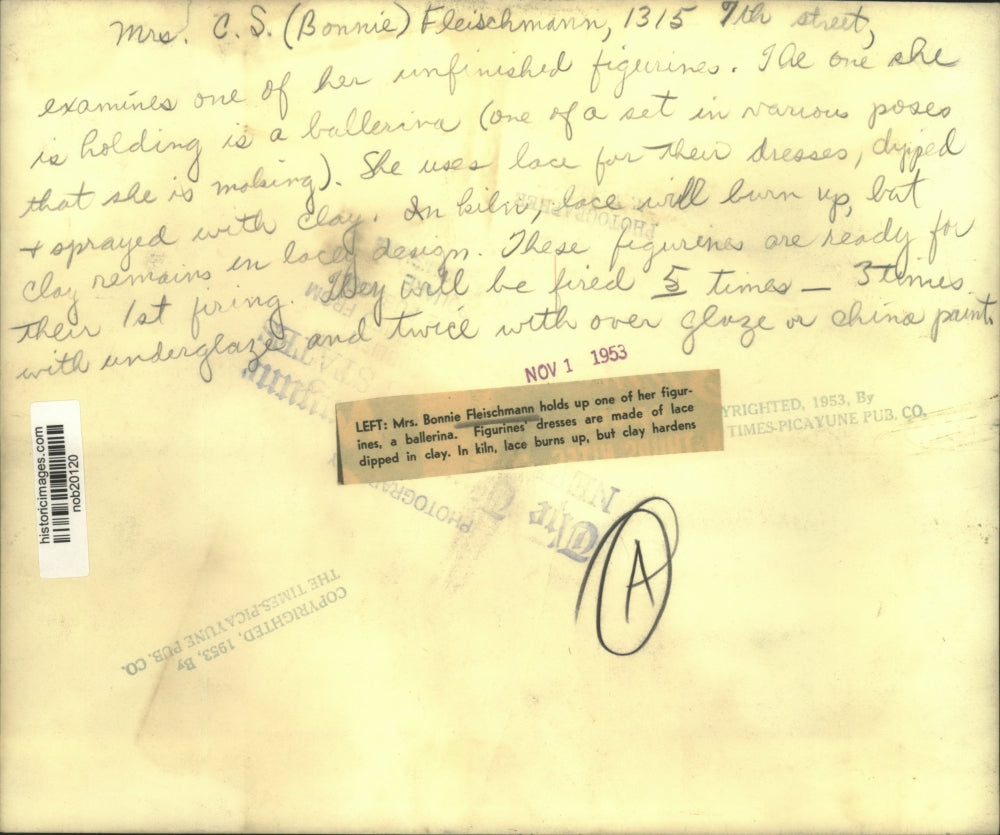 Mrs. C. S. (Bonnie) Fleischmann, 1315 7th street,
examines one of her unfinished figurines. The one she
is holding is a ballerina (one of a set in various poses
that she is making). She uses lace for their dresses, dipped
+ sprayed with clay. In kiln, lace will burn up, but
clay remains in lacey design. These figurines are ready for
their 1st firing. They will be fired 5 times — 3 times
with underglaze and twice with over glaze or china paint.
NOV 1 1953
LEFT: Mrs. Bonnie Fleischmann holds up one of her figur-
ines, a ballerina. Figurines' dresses are made of lace
dipped in clay. In kiln, lace burns up, but clay hardens
YRIGHTED, 1953, By
TIMES-PICAYUNE PUB. CO.
PHOTOGRAPHER
FROM
STATES
PHOTOGRA
The
NE
A
historicimages.com
nob20120
COPYRIGHTED, 1953, By
THE TIMES-PICAYUNE PUB. CO.